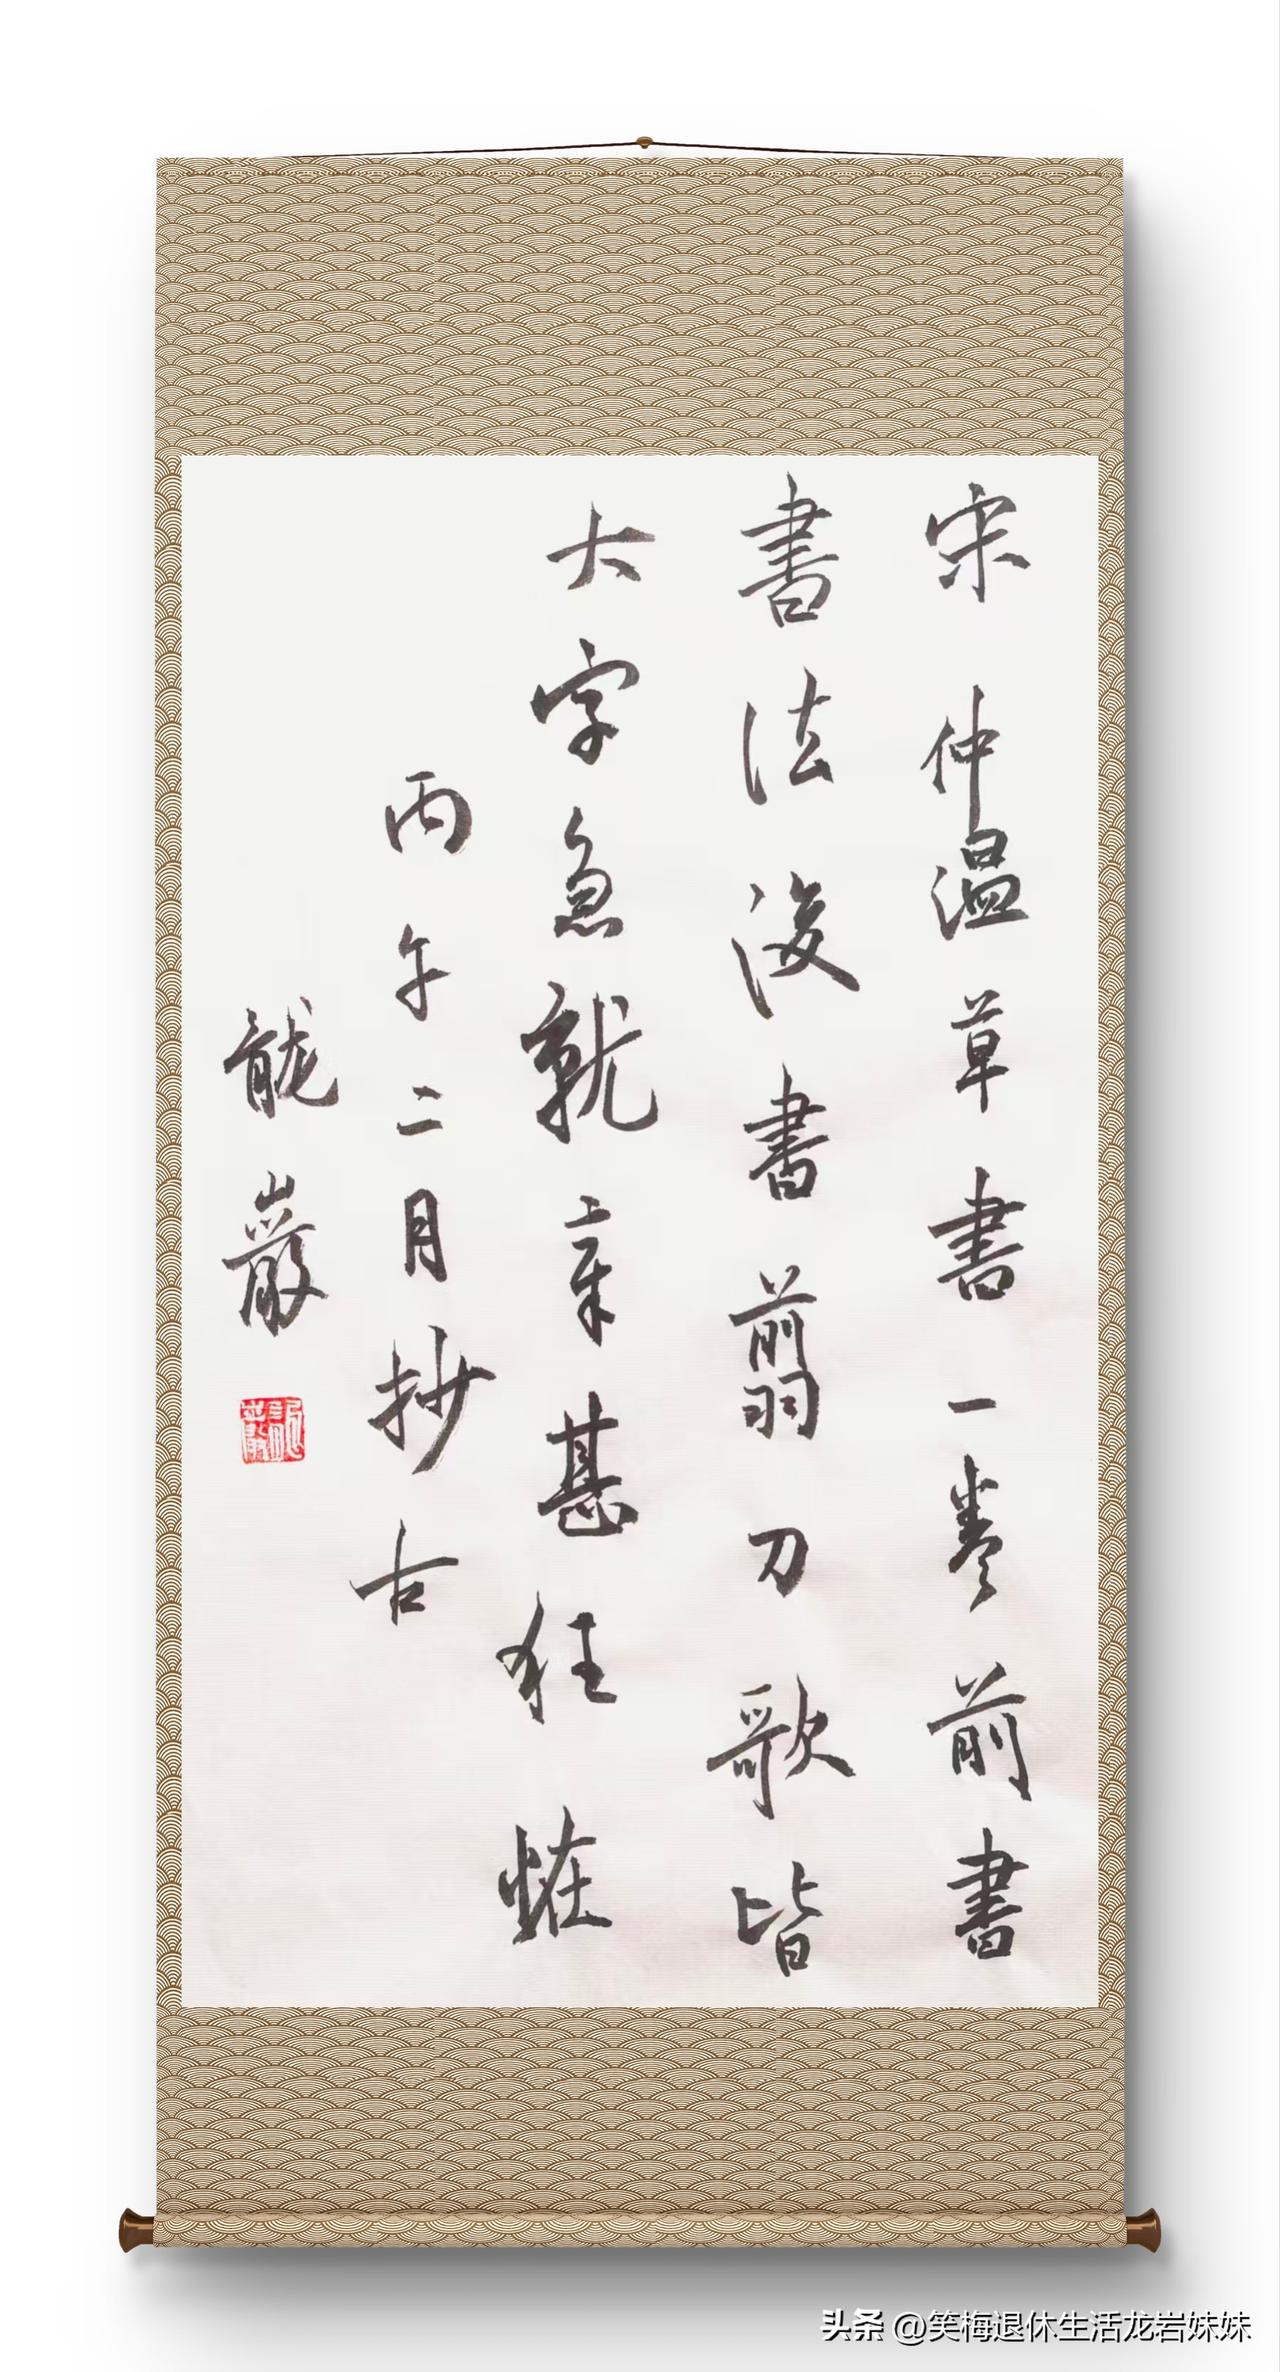 宋仲温草書一卷前書
書法後書翦刀歌皆
大字急就章甚狂恠
丙午二月抄古
龍巖
龍巖
头条 @笑梅退休生活龙岩妹妹